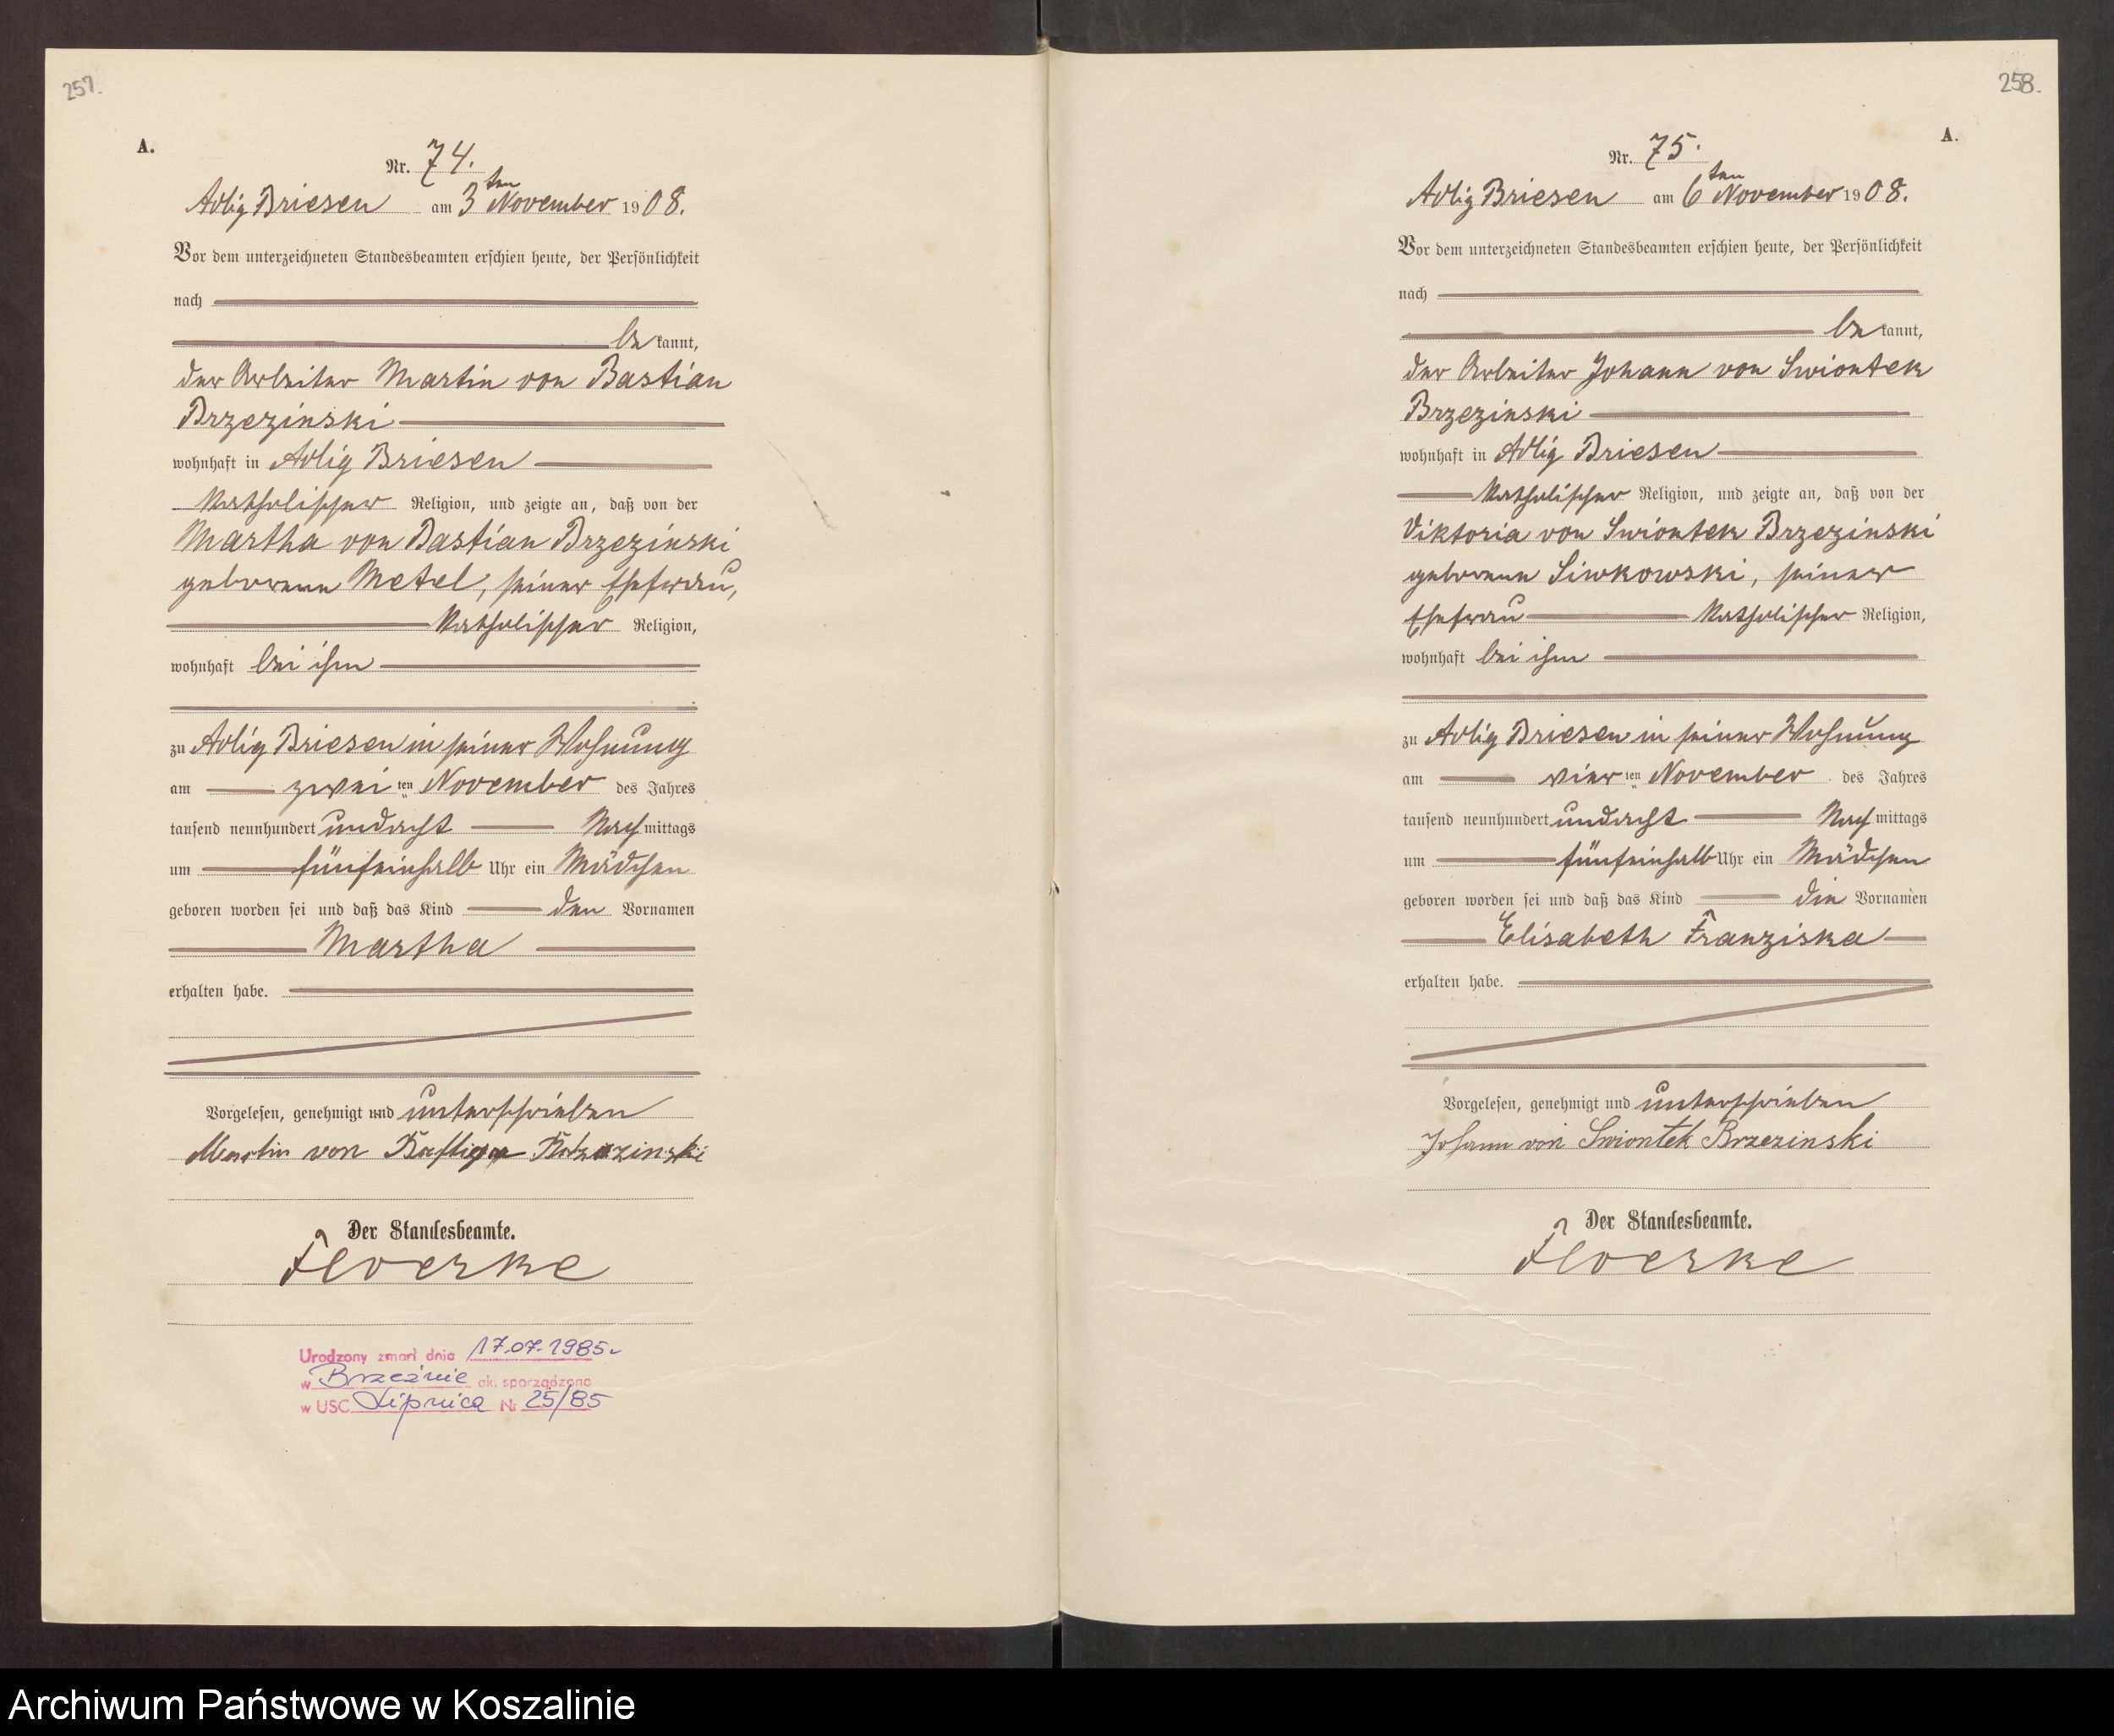 257.
A.
Nr. 74.
Adlig Briesen am 3ten November 1908.
Vor dem unterzeichneten Standesbeamten erschien heute, der Persönlichkeit
nach
bekannt,
der Arbeiter Martin von Bastian
Brzezinski
wohnhaft in Adlig Briesen
katholischer Religion, und zeigte an, daß von der
Martha von Bastian Brzezinski
geborenen Metel, seiner Ehefrau,
katholischer Religion,
wohnhaft bei ihm
zu Adlig Briesen in seiner Wohnung
am zweiten November des Jahres
tausend neunhundert undacht Nachmittags
um fünfeinhalb Uhr ein Mädchen
geboren worden sei und daß das Kind den Vornamen
Martha
erhalten habe.
Vorgelesen, genehmigt und unterschrieben
Martin von Bastian Brzezinski
Der Standesbeamte.
Floerke
Urodzony zmarł dnia 17.07.1985r
w Brzeźnie akt sporządzono
w USC Lipnica Nr 25/85
258.
A.
Nr. 75.
Adlig Briesen am 6ten November 1908.
Vor dem unterzeichneten Standesbeamten erschien heute, der Persönlichkeit
nach
bekannt,
der Arbeiter Johann von Swiontek
Brzezinski
wohnhaft in Adlig Briesen
katholischer Religion, und zeigte an, daß von der
Viktoria von Swiontek Brzezinski
geborene Siwkowski, seiner
Ehefrau katholischer Religion,
wohnhaft bei ihm
zu Adlig Briesen in seiner Wohnung
am vierten November des Jahres
tausend neunhundert undacht Nachmittags
um fünfeinhalb Uhr ein Mädchen
geboren worden sei und daß das Kind die Vornamen
Elisabeth Franziska
erhalten habe.
Vorgelesen, genehmigt und unterschrieben
Johann von Swiontek Brzezinski
Der Standesbeamte.
Floerke
Archiwum Państwowe w Koszalinie